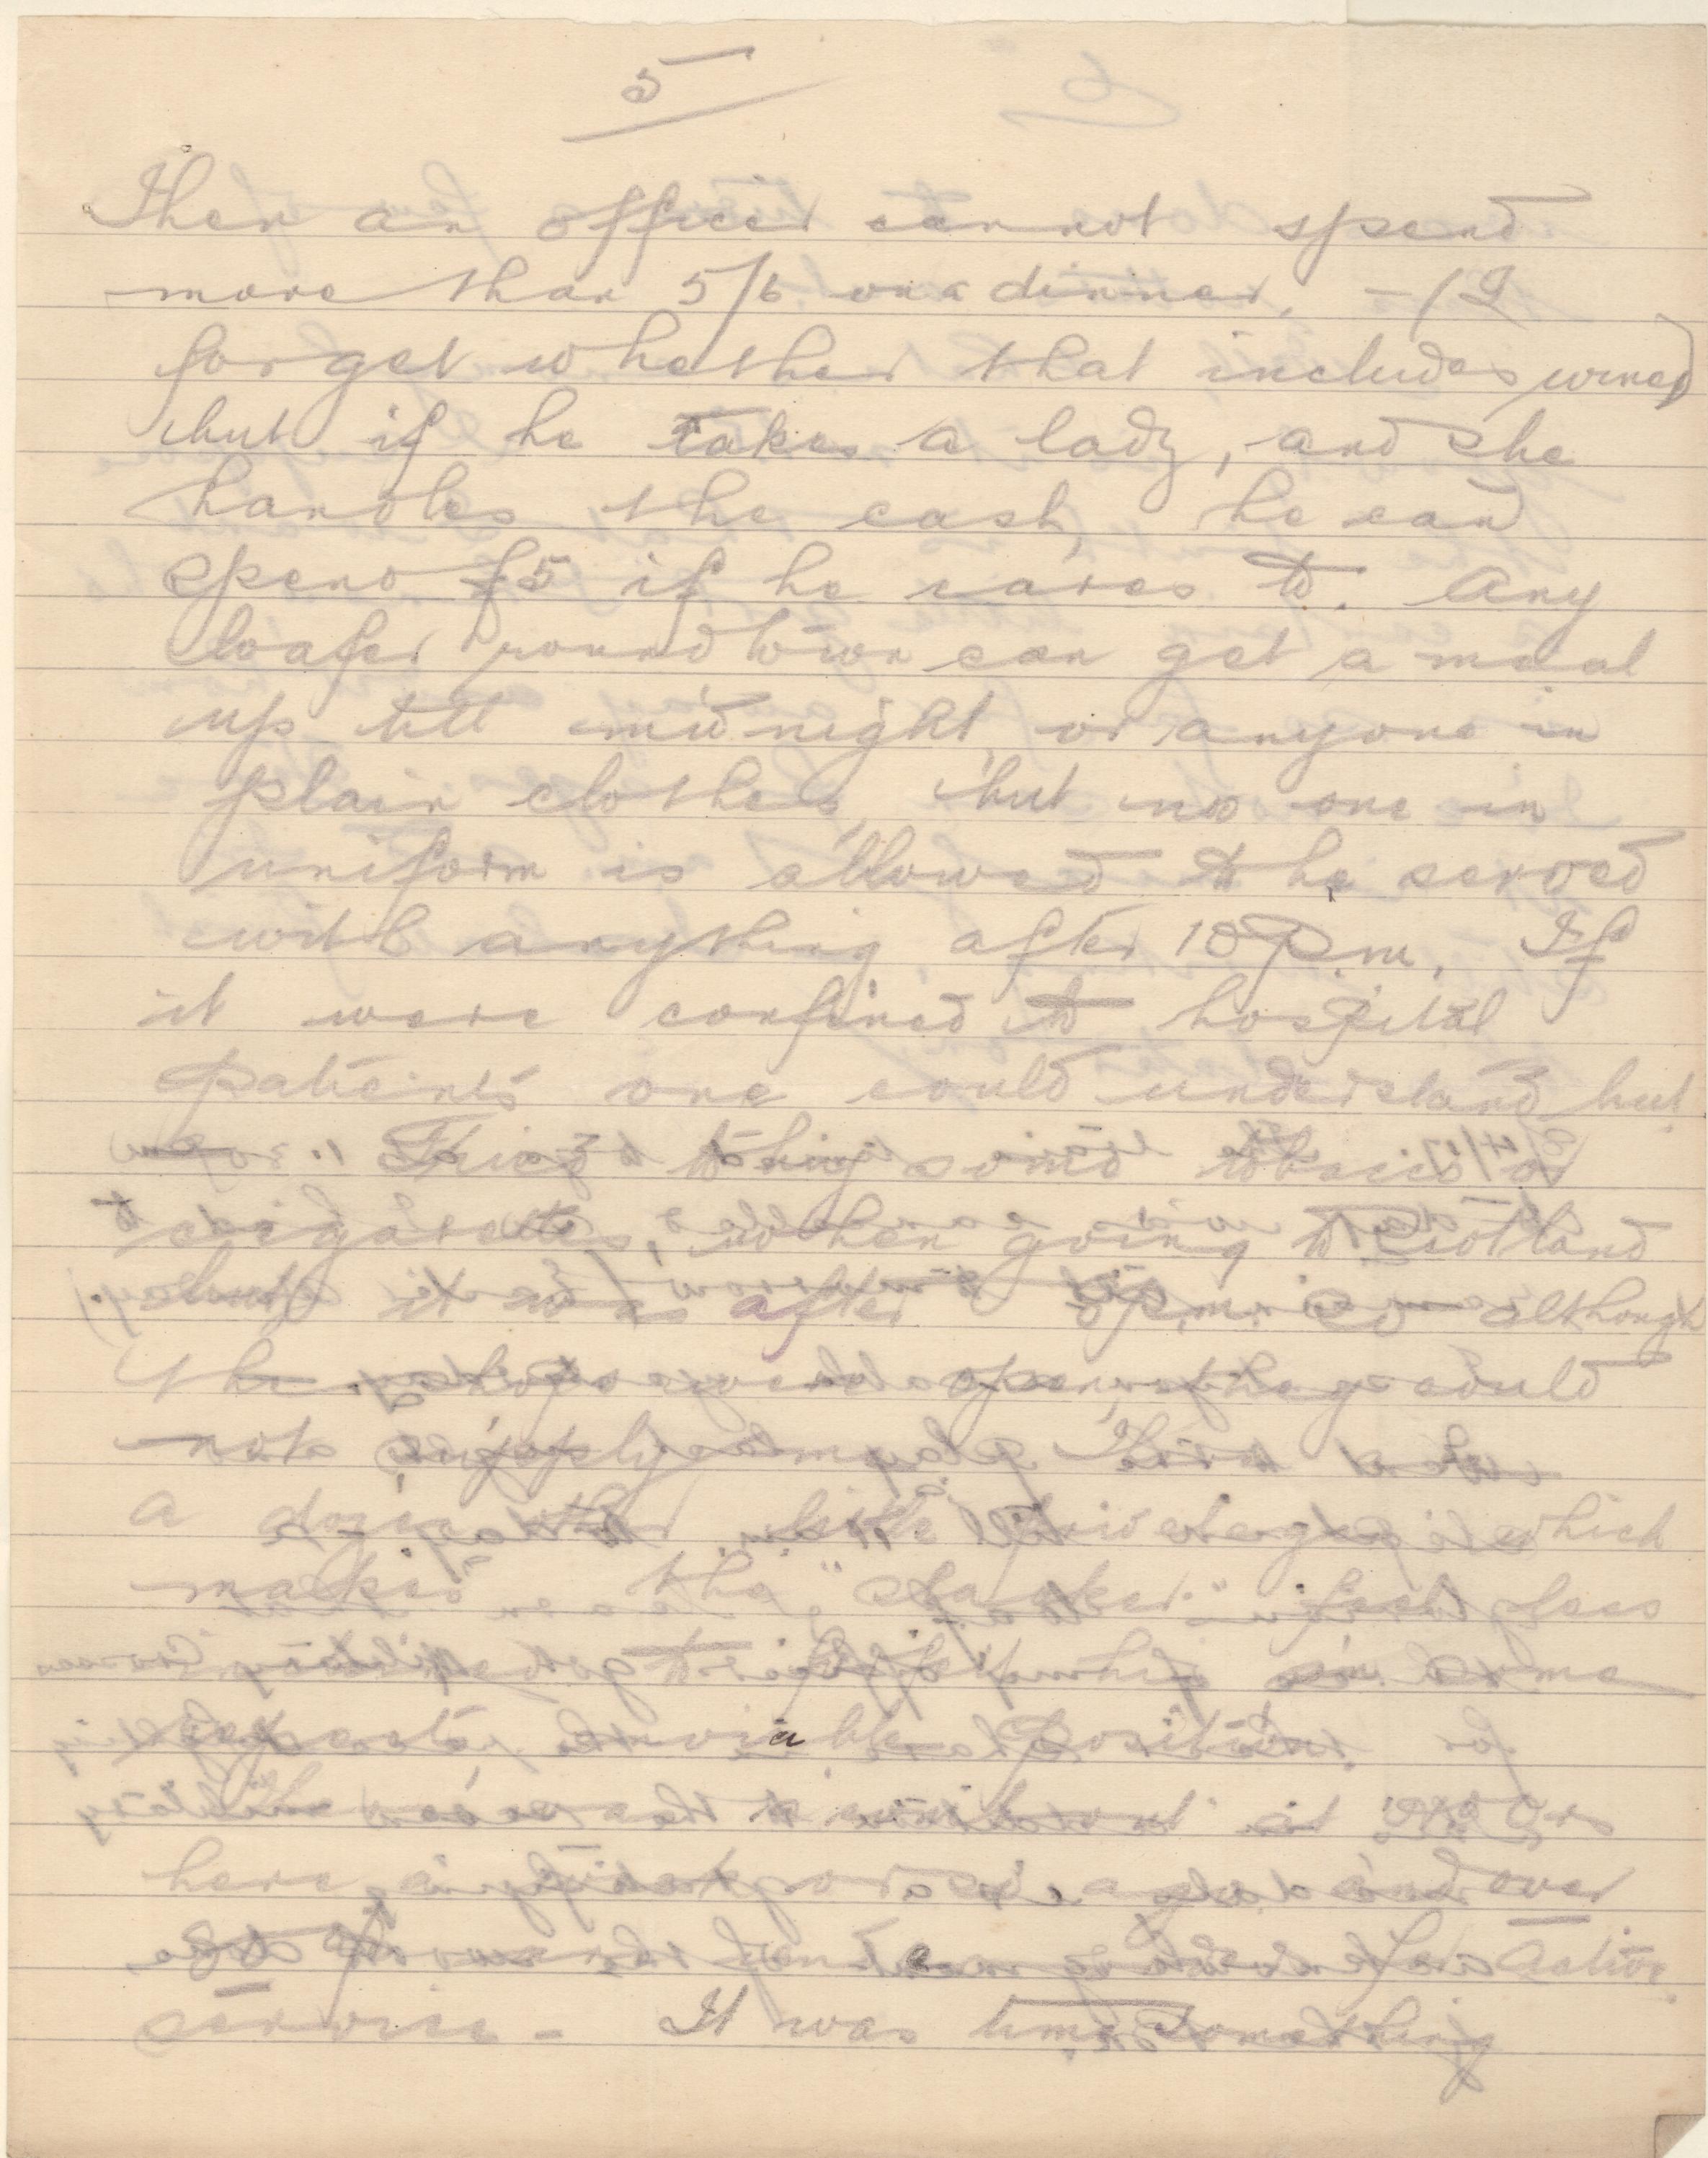 5
Then an officer cannot spend
more than 5/6 on a dinner. – (I
forget whether that includes wines)
but if he takes a lady, and she
handles the cash, he can
spend £5 if he cares to. Any
loafer round town can get a meal
up till midnight, or anyone in
plain clothes, but no one in
uniform is allowed to be served
with anything after 10 p.m. If
it were confined to hospital
patients one could understand but
Tried to buy some tobacco or
cigarettes, when going to Scotland
but it was after 8 p.m. so although
the shops were open, they could
not supply me. This and
a dozen other little privileges which
makes the "slacker" feel
to in some
enviable position.
at
here and over
for active
service – It was time something